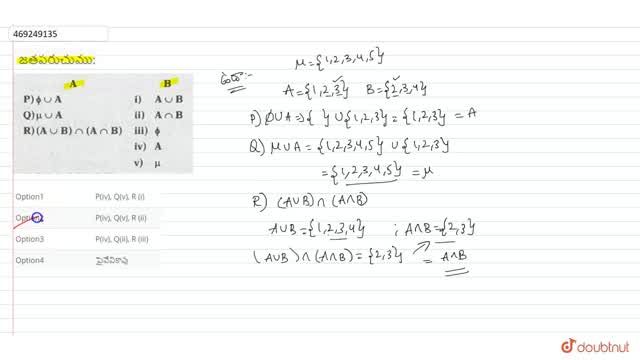 469249135
జతపరుచుము:
A B
P) ϕ ∪ A i) A ∪ B
Q) μ ∪ A ii) A ∩ B
R) (A ∪ B) ∩ (A ∩ B) iii) ϕ
iv) A
v) μ
Option1 P(iv), Q(v), R (i)
Option2 P(iv), Q(v), R (ii)
Option3 P(iv), Q(iii), R (iii)
Option4 పైవేవికావు
μ = {1,2,3,4,5}
ఉదా:-
A = {1,2,3} B = {2,3,4}
P) ϕ∪A ⇒ { } ∪ {1,2,3} = {1,2,3} = A
Q) μ∪A = {1,2,3,4,5} ∪ {1,2,3}
= {1,2,3,4,5} = μ
R) (A∪B) ∩ (A∩B)
A∪B = {1,2,3,4} ; A∩B = {2,3}
(A∪B) ∩ (A∩B) = {2,3} = A∩B
doubtnut